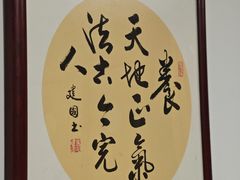 養
天地正氣
法古今完
人
建國书